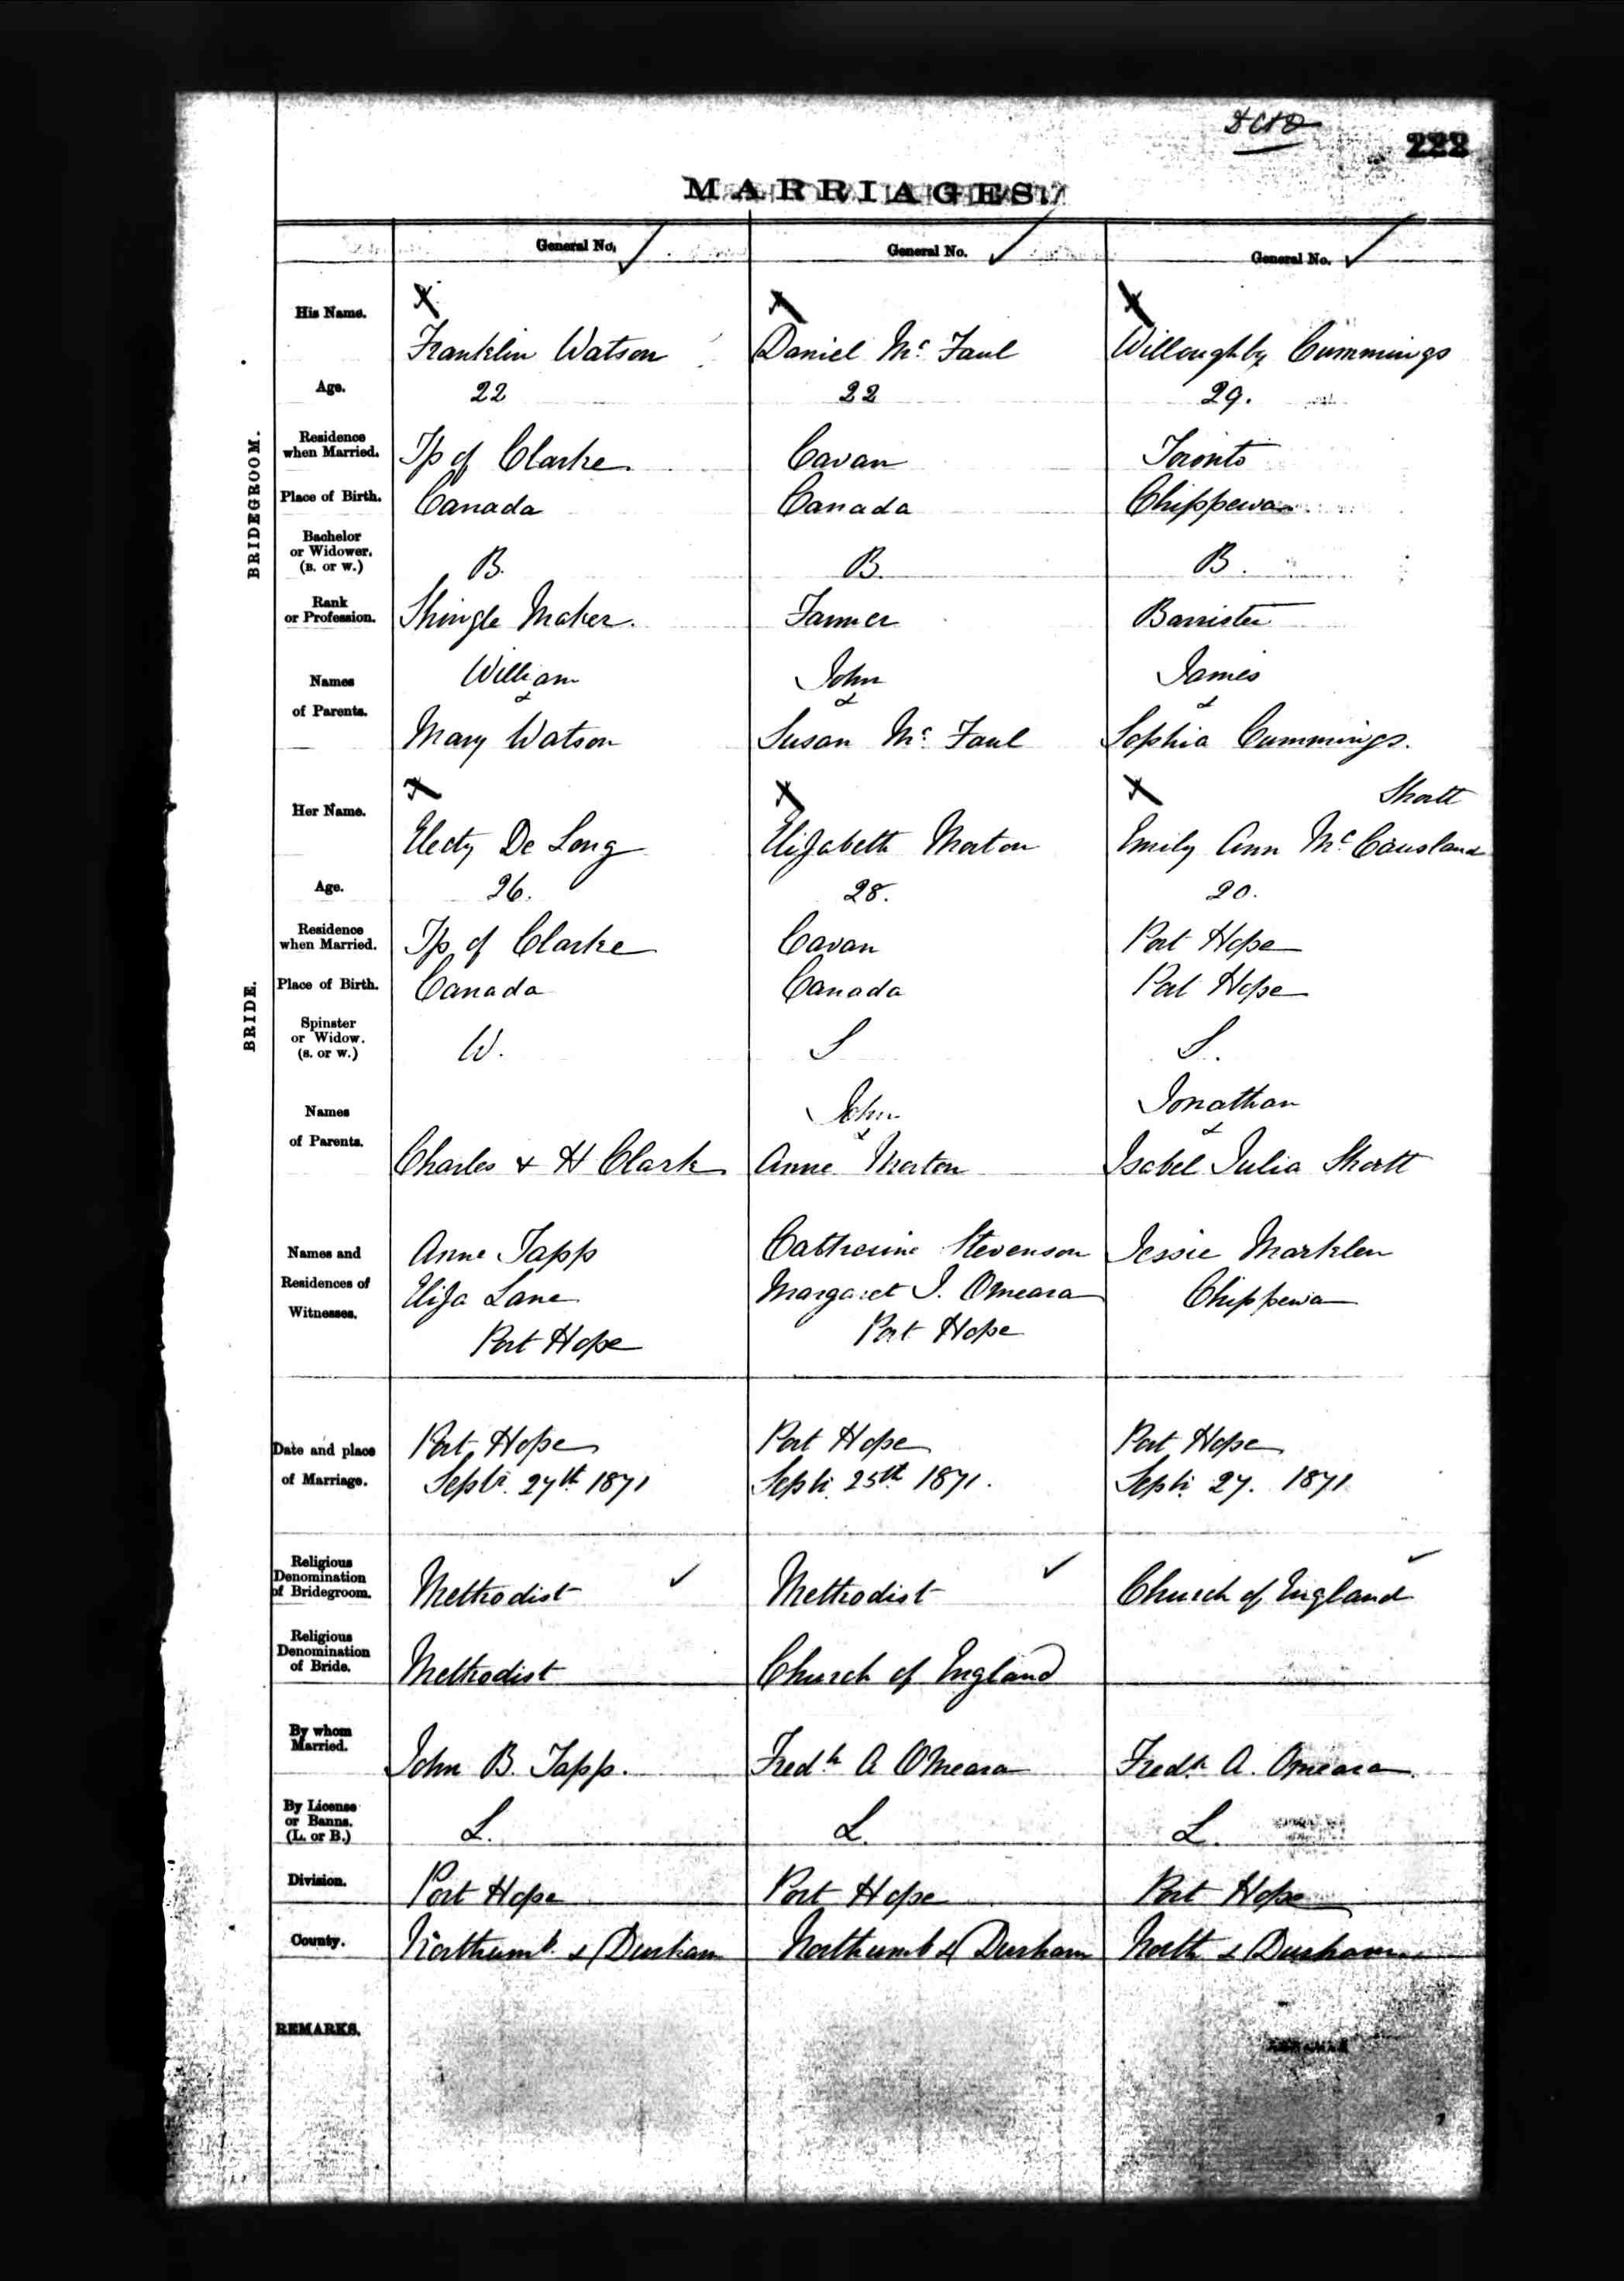 222
MARRIAGES.
General No. General No. General No.
BRIDEGROOM.
His Name.
Franklin Watson Daniel Mc Faul Willoughby Cummings
Age. 22 22 29.
Residence when Married. Tp of Clarke Cavan Toronto
Place of Birth. Canada Canada Chippewa
Bachelor or Widower. (B. or W.) B. B. B.
Rank or Profession. Shingle Maker. Farmer Barrister
Names of Parents.
William John James
& & &
Mary Watson Susan Mc Faul Sophia Cummings.
BRIDE.
Her Name.
Shortt
Electy De Long Elizabeth Morton Emily Ann Mc Causland
Age. 26. 28. 20.
Residence when Married. Tp of Clarke Cavan Port Hope
Place of Birth. Canada Canada Port Hope
Spinster or Widow. (S. or W.) W. S S.
Names of Parents.
John Jonathan
& &
Charles & H Clark Anne Morton Isabel Julia Shortt
Names and Residences of Witnesses.
Anne Tapp Catherine Stevenson Jessie Marklen
Eliza Lane Margaret J. Omeara Chippewa
Port Hope Port Hope
Date and place of Marriage.
Port Hope Port Hope Port Hope
Septr. 27th 1871 Septr. 25th 1871. Septr. 27. 1871
Religious Denomination of Bridegroom. Methodist Methodist Church of England
Religious Denomination of Bride. Methodist Church of England
By whom Married. John B. Tapp. Fredk A OMeara Fredk A. Omeara
By License or Banns. (L. or B.) L. L. L.
Division. Port Hope Port Hope Port Hope
County. Northumb. & Durham Northumb & Durham North & Durham
REMARKS.